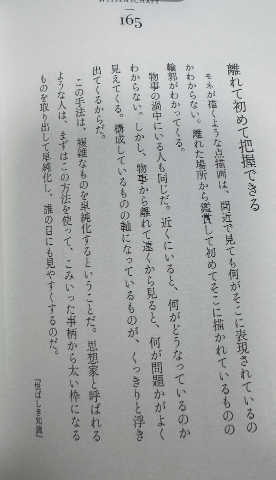 WISSENSCHAFT
165
離れて初めて把握できる
モネが描くような点描画は、間近で見ても何がそこに表現されているの
かわからない。離れた場所から鑑賞して初めてそこに描かれているものの
輪郭がわかってくる。
物事の渦中にいる人も同じだ。近くにいると、何がどうなっているのか
わからない。しかし、物事から離れて遠くから見ると、何が問題かがよく
見えてくる。構成しているものの軸になっているものが、くっきりと浮き
出てくるからだ。
この手法は、複雑なものを単純化するということだ。思想家と呼ばれる
ような人は、まずはこの方法を使って、こみいった事柄から太い枠になる
ものを取り出して単純化し、誰の目にも見やすくするのだ。
『悦ばしき知識』